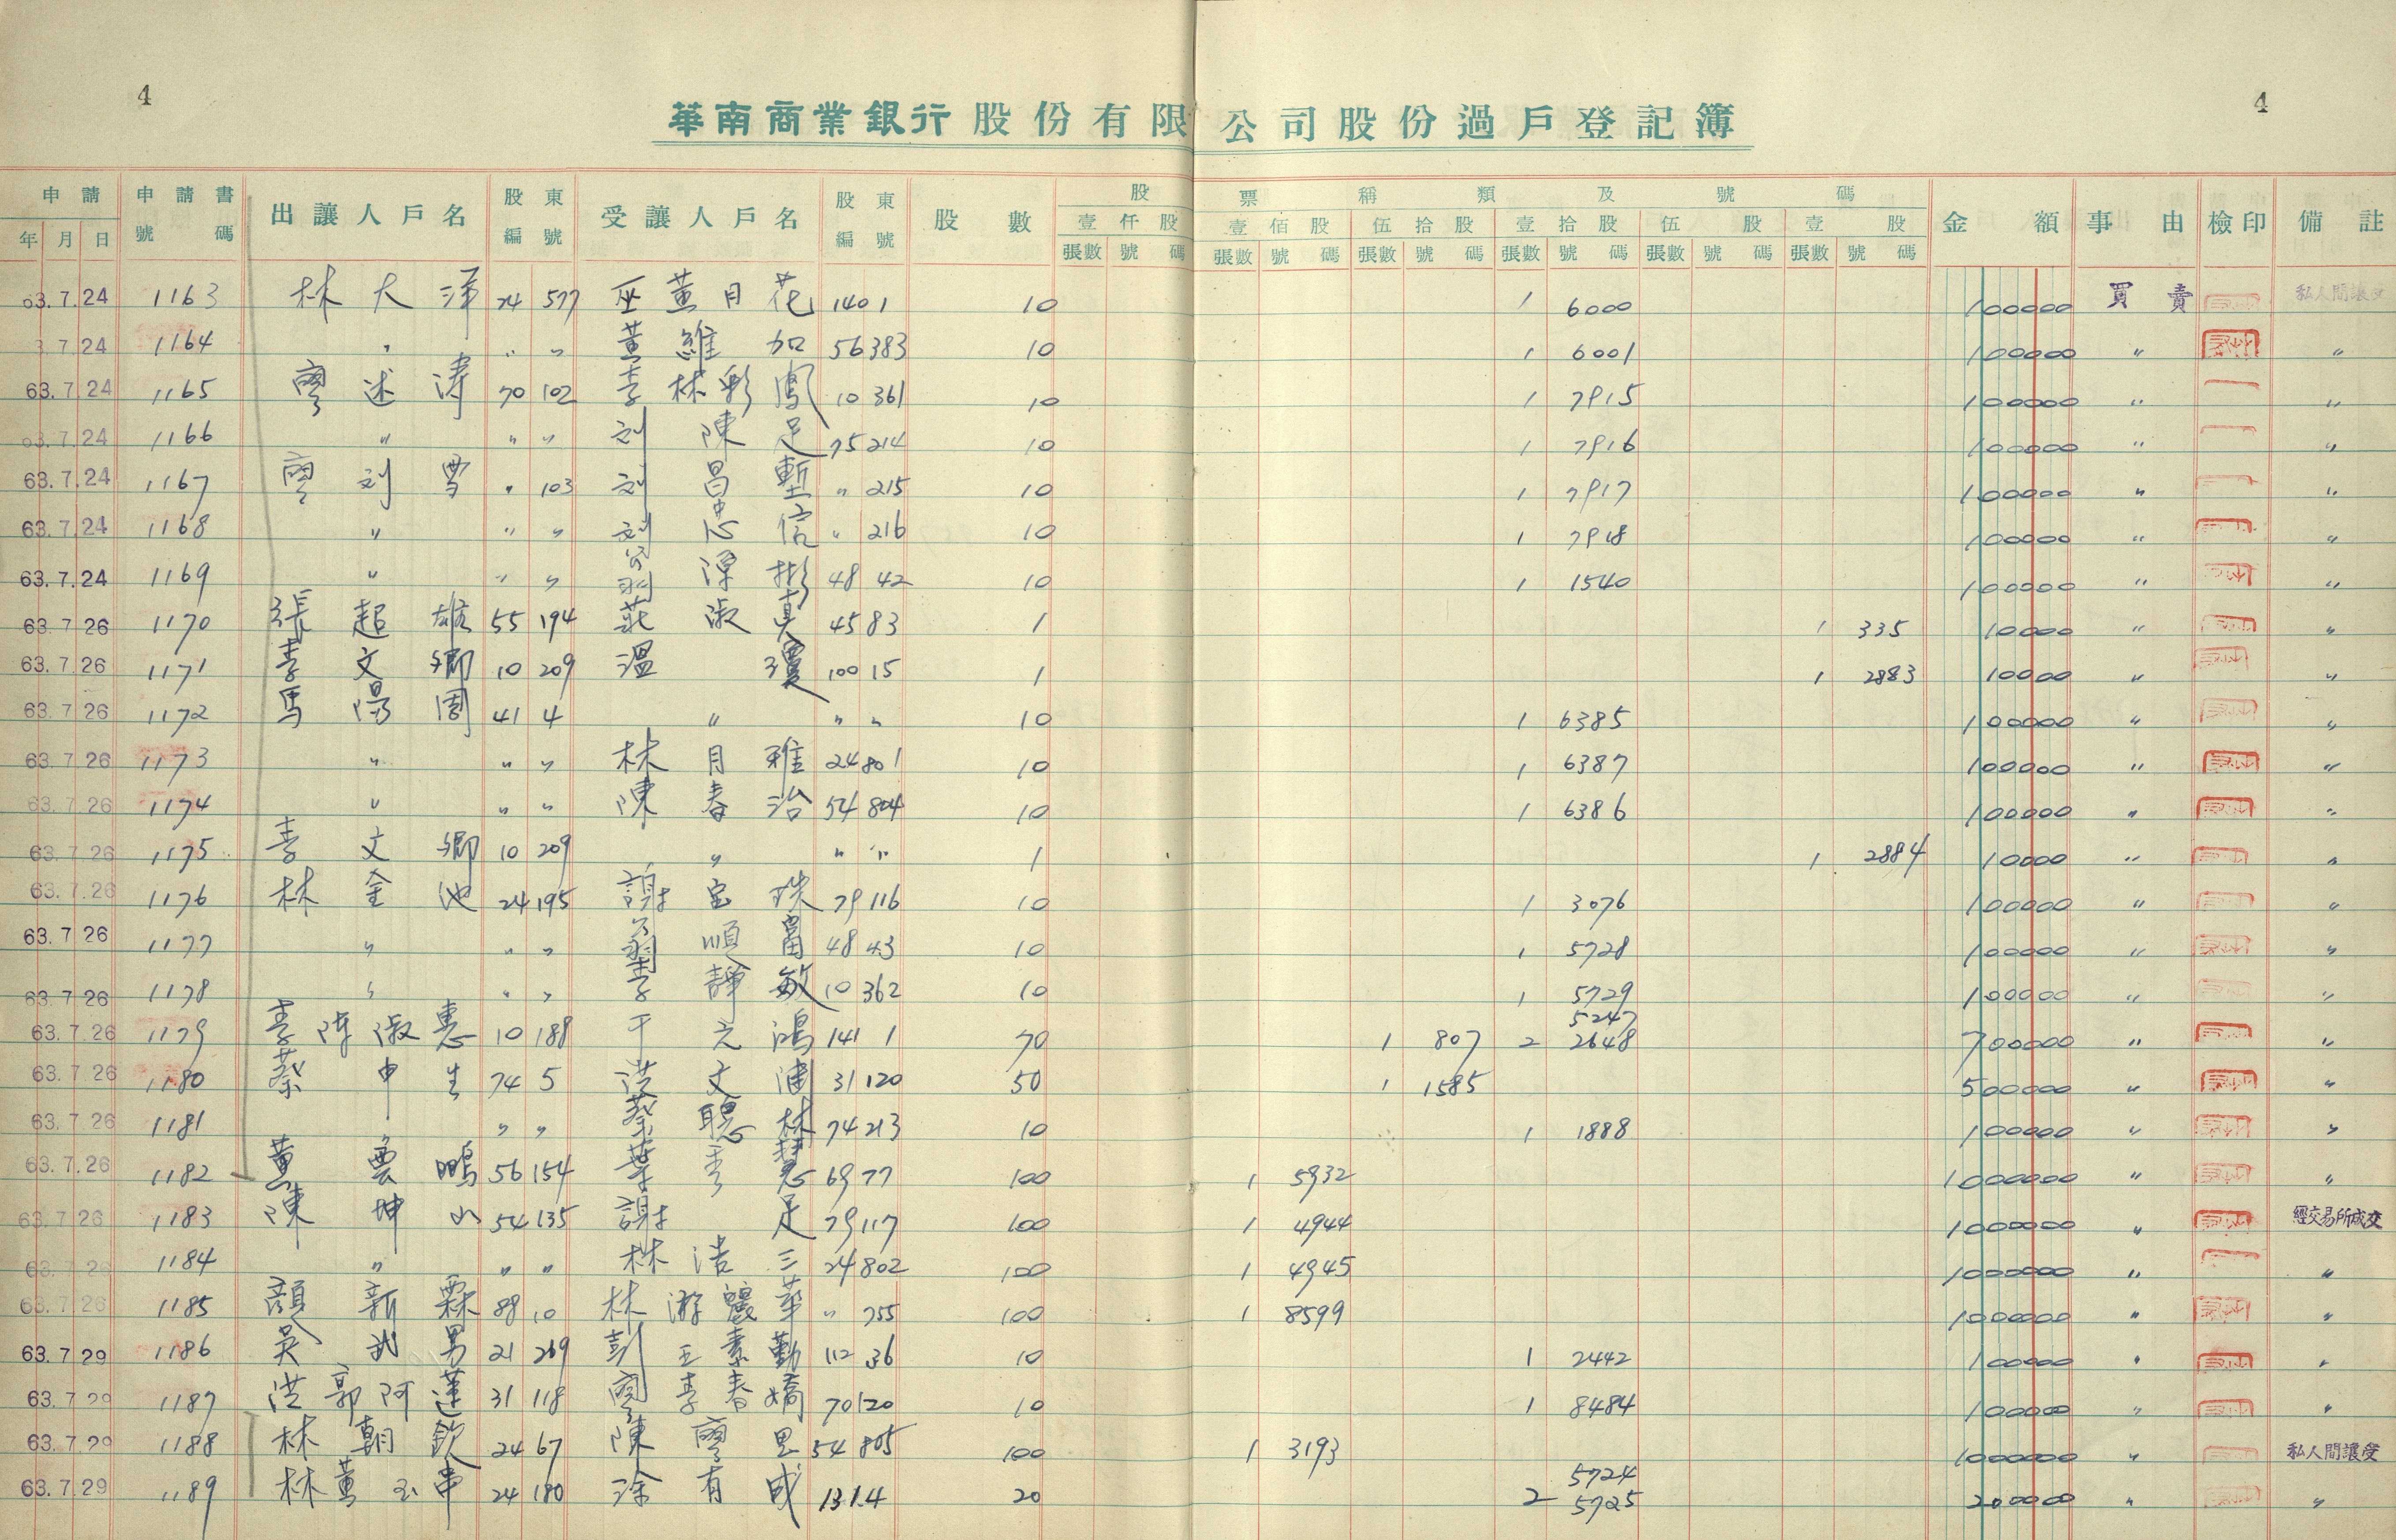 4
4
華南商業銀行股份有限公司股份過戶登記簿
申請 申請書 出讓人戶名 股東 受讓人戶名 股東 股數 股票種類及號碼 金額 事由 檢印 備註
年 月 日 號碼 編號 編號 壹仟股 壹佰股 伍拾股 壹拾股 伍股 壹股
張數 號碼 張數 號碼 張數 號碼 張數 號碼 張數 號碼 張數 號碼
63.7.24 1163 林大 24 577 巫黃月花 140 1 10 1 6000 100000 買賣 私人間讓受
7.24 1164 〃 〃 〃 黃維加 56 383 10 1 6001 100000 〃 〃
63.7.24 1165 廖述濤 70 102 李林彩鳳 10 361 10 1 7915 100000 〃 〃
63.7.24 1166 〃 〃 〃 刘陳足 75 214 10 1 7916 100000 〃 〃
63.7.24 1167 廖刘雪 〃 103 刘昌塹 〃 215 10 1 7917 100000 〃 〃
63.7.24 1168 〃 〃 〃 刘忠信 〃 216 10 1 7918 100000 〃 〃
63.7.24 1169 〃 〃 〃 翁 彬 48 42 10 1 1540 100000 〃 〃
63.7.26 1170 張超雄 55 194 莊淑 45 83 1 1 335 10000 〃 〃
63.7.26 1171 李文卿 10 209 溫瓊 100 15 1 1 2883 10000 〃 〃
63.7.26 1172 馬陽周 41 4 〃 〃 〃 10 1 6385 100000 〃 〃
63.7.26 1173 〃 〃 〃 林月雅 24 801 10 1 6387 100000 〃 〃
63.7.26 1174 〃 〃 〃 陳春治 54 804 10 1 6386 100000 〃 〃
63.7.26 1175 李文卿 10 209 〃 〃 〃 1 1 2884 10000 〃 〃
63.7.26 1176 林金池 24 195 謝宝珠 79 116 10 1 3076 100000 〃 〃
63.7.26 1177 〃 〃 〃 翁順富 48 43 10 1 5728 100000 〃 〃
63.7.26 1178 〃 〃 〃 李靜敏 10 362 10 1 5729 100000 〃 〃
5247
63.7.26 1179 李陳淑惠 10 188 于元鴻 141 1 70 1 807 2 2648 700000 〃 〃
63.7.26 1180 蔡中生 74 5 洪文 31 120 50 1 1585 500000 〃 〃
63.7.26 1181 〃 〃 〃 蔡聰林 74 213 10 1 1888 100000 〃 〃
63.7.26 1182 黃雲鵬 56 154 葉秀慧 69 77 100 1 5932 1000000 〃 〃
63.7.26 1183 陳坤山 54 135 謝足 79 117 100 1 4944 1000000 〃 經交易所成交
63.7.26 1184 〃 〃 〃 林浩三 24 802 100 1 4945 1000000 〃 〃
63.7.26 1185 顏新霖 88 10 林游 華 〃 755 100 1 8599 1000000 〃 〃
63.7.29 1186 吳武男 21 269 彭王素勤 112 36 10 1 2442 100000 〃 〃
63.7.29 1187 洪郭阿蓮 31 118 廖李春嬌 70 120 10 1 8484 100000 〃 〃
63.7.29 1188 林朝欽 24 67 陳廖里 54 805 100 1 3193 1000000 〃 私人間讓受
5724
63.7.29 1189 林黃玉串 24 180 涂有成 131 4 20 2 5725 200000 〃 〃